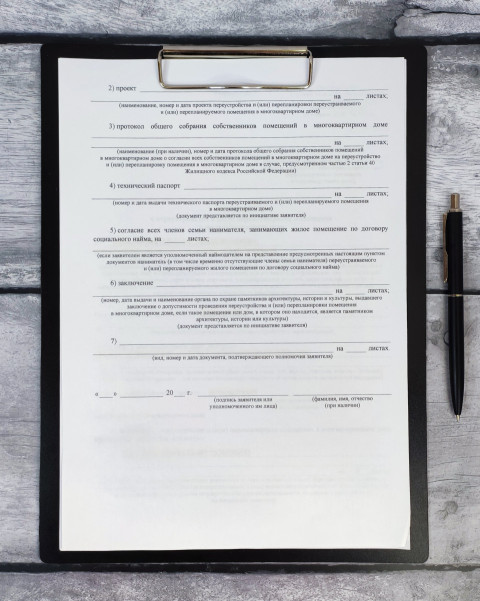 2) проект
на листах,
(наименование, номер и дата проекта переустройства и (или) перепланировки переустраиваемого
и (или) перепланируемого помещения в многоквартирном доме)
3) протокол общего собрания собственников помещений в многоквартирном доме
на листах,
(наименование (при наличии), номер и дата протокола общего собрания собственников помещений
в многоквартирном доме о согласии всех собственников помещений в многоквартирном доме на переустройство
и (или) перепланировку помещения в многоквартирном доме в случае, предусмотренном частью 2 статьи 40
Жилищного кодекса Российской Федерации)
4) технический паспорт
на листах,
(номер и дата выдачи технического паспорта переустраиваемого и (или) перепланируемого помещения
в многоквартирном доме)
(документ представляется по инициативе заявителя)
5) согласие всех членов семьи нанимателя, занимающих жилое помещение по договору
социального найма, на листах,
(если заявителем является уполномоченный наймодателем на представление предусмотренных настоящим пунктом
документов наниматель (в том числе временно отсутствующие члены семьи нанимателя) переустраиваемого
и (или) перепланируемого жилого помещения по договору социального найма)
6) заключение
на листах,
(номер, дата выдачи и наименование органа по охране памятников архитектуры, истории и культуры, выдавшего
заключение о допустимости проведения переустройства и (или) перепланировки помещения
в многоквартирном доме, если такое помещение или дом, в котором оно находится, является памятником
архитектуры, истории или культуры)
(документ представляется по инициативе заявителя)
7)
на листах.
(вид, номер и дата документа, подтверждающего полномочия заявителя)
«___» ________ 20__ г.
(подпись заявителя или
уполномоченного им лица)
(фамилия, имя, отчество
(при наличии)